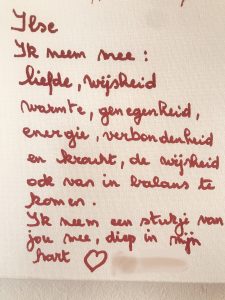 Ilse
Ik neem mee :
liefde, wijsheid
warmte, genegenheid,
energie, verbondenheid
en kracht, de wijsheid
ook van in balans te
komen.
Ik neem een stukje van
jou mee, diep in mijn
hart ♡